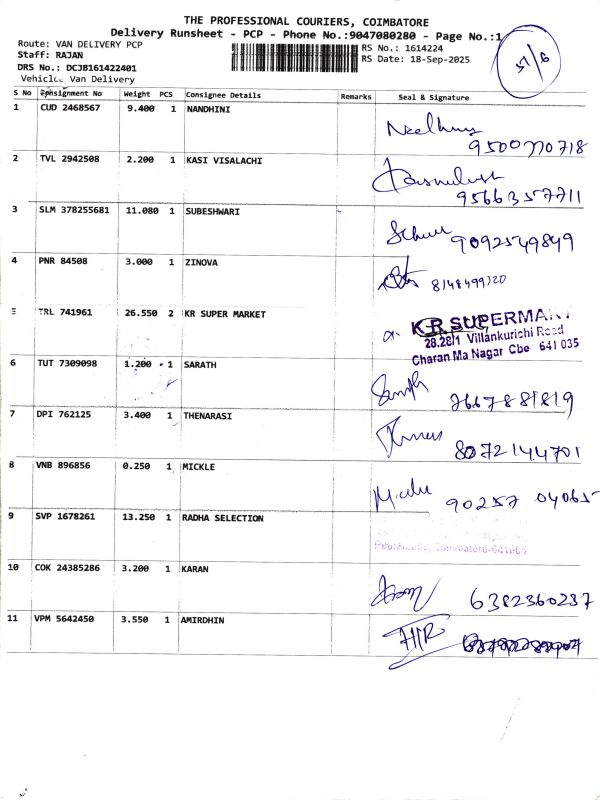 THE PROFESSIONAL COURIERS, COIMBATORE
Delivery Runsheet - PCP - Phone No.:9047080280 - Page No.:1
Route: VAN DELIVERY PCP
Staff: RAJAN
RS No.: 1614224
DRS No.: DCJB161422401
RS Date: 18-Sep-2025
Vehicle: Van Delivery
S No Consignment No Weight PCS Consignee Details Remarks Seal & Signature
1 CUD 2468567 9.400 1 NANDHINI
2 TVL 2942508 2.200 1 KASI VISALACHI
9566357711
3 SLM 378255681 11.080 1 SUBESHWARI
9092549849
4 PNR 84508 3.000 1 ZINOVA
5 TRL 741961 26.550 2 KR SUPER MARKET
K R SUPERMAR
28.28/1 Villankurichi Road
Charan Ma Nagar Cbe 641 035
6 TUT 7309098 1.200 1 SARATH
7667881819
7 DPI 762125 3.400 1 THENARASI
8072144701
8 VNB 896856 0.250 1 MICKLE
90257 04065
9 SVP 1678261 13.250 1 RADHA SELECTION
10 COK 24385286 3.200 1 KARAN
6382360237
11 VPM 5642450 3.550 1 AMIRDHIN